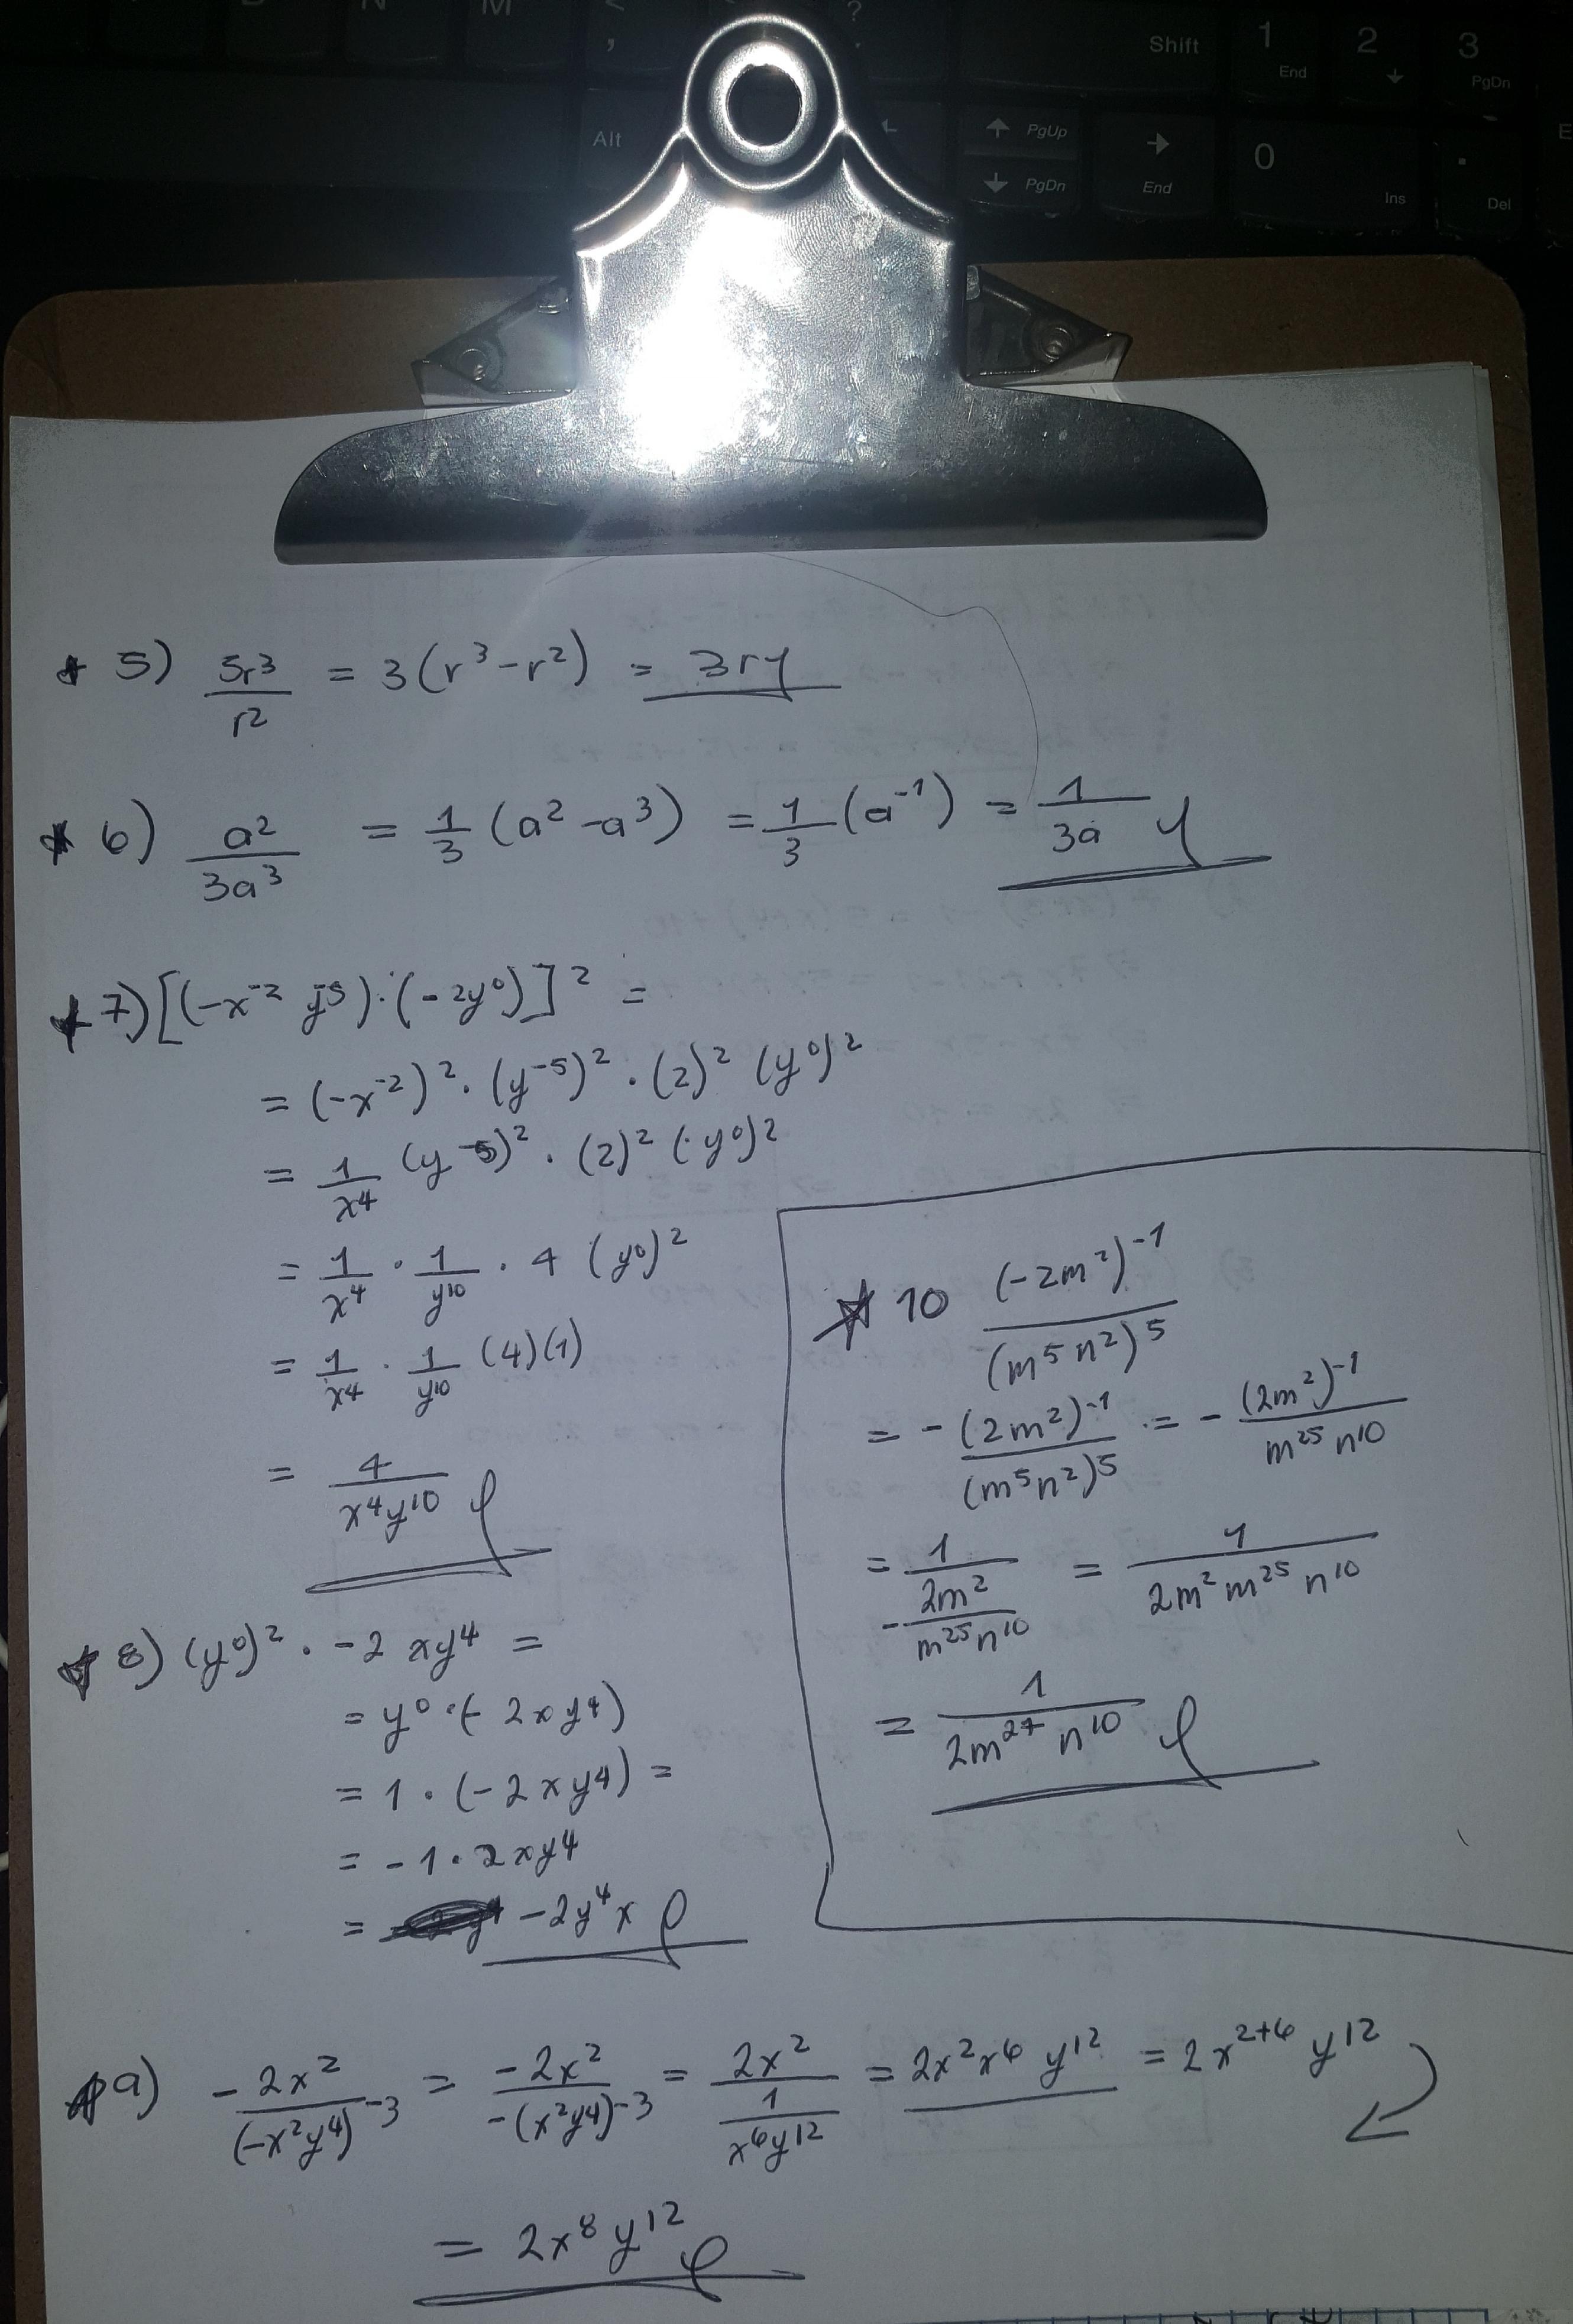 N M < ?
, .
Shift 1 End 2 3 PgDn
Alt PgUp PgDn End 0 Ins . Del
* 5) 3r³/r² = 3(r³-r²) = 3r
* 6) a²/3a³ = 1/3 (a²-a³) = 1/3 (a⁻¹) = 1/3a
* 7) [(-x⁻² y⁻⁵)·(-2y⁰)]² =
= (-x⁻²)²·(y⁻⁵)²·(2)² (y⁰)²
= 1/x⁴ (y⁻⁵)²·(2)² (·y⁰)²
= 1/x⁴ · 1/y¹⁰ · 4 (y⁰)²
= 1/x⁴ · 1/y¹⁰ (4)(1)
= 4/x⁴y¹⁰
* 8) (y⁰)² · -2 xy⁴ =
= y⁰·(-2xy⁴)
= 1·(-2xy⁴) =
= -1·2xy⁴
= -2y⁴x
* 10 (-2m²)⁻¹/(m⁵n²)⁵
= - (2m²)⁻¹/(m⁵n²)⁵ ·= - (2m²)⁻¹/m²⁵n¹⁰
= - 1/2m²/m²⁵n¹⁰ = 1/2m²m²⁵n¹⁰
= 1/2m²⁷n¹⁰
* 9) -2x²/(-x²y⁴)⁻³ = -2x²/-(x²y⁴)⁻³ = 2x²/1/x⁶y¹² = 2x²x⁶y¹² = 2x²⁺⁶y¹²
= 2x⁸y¹²